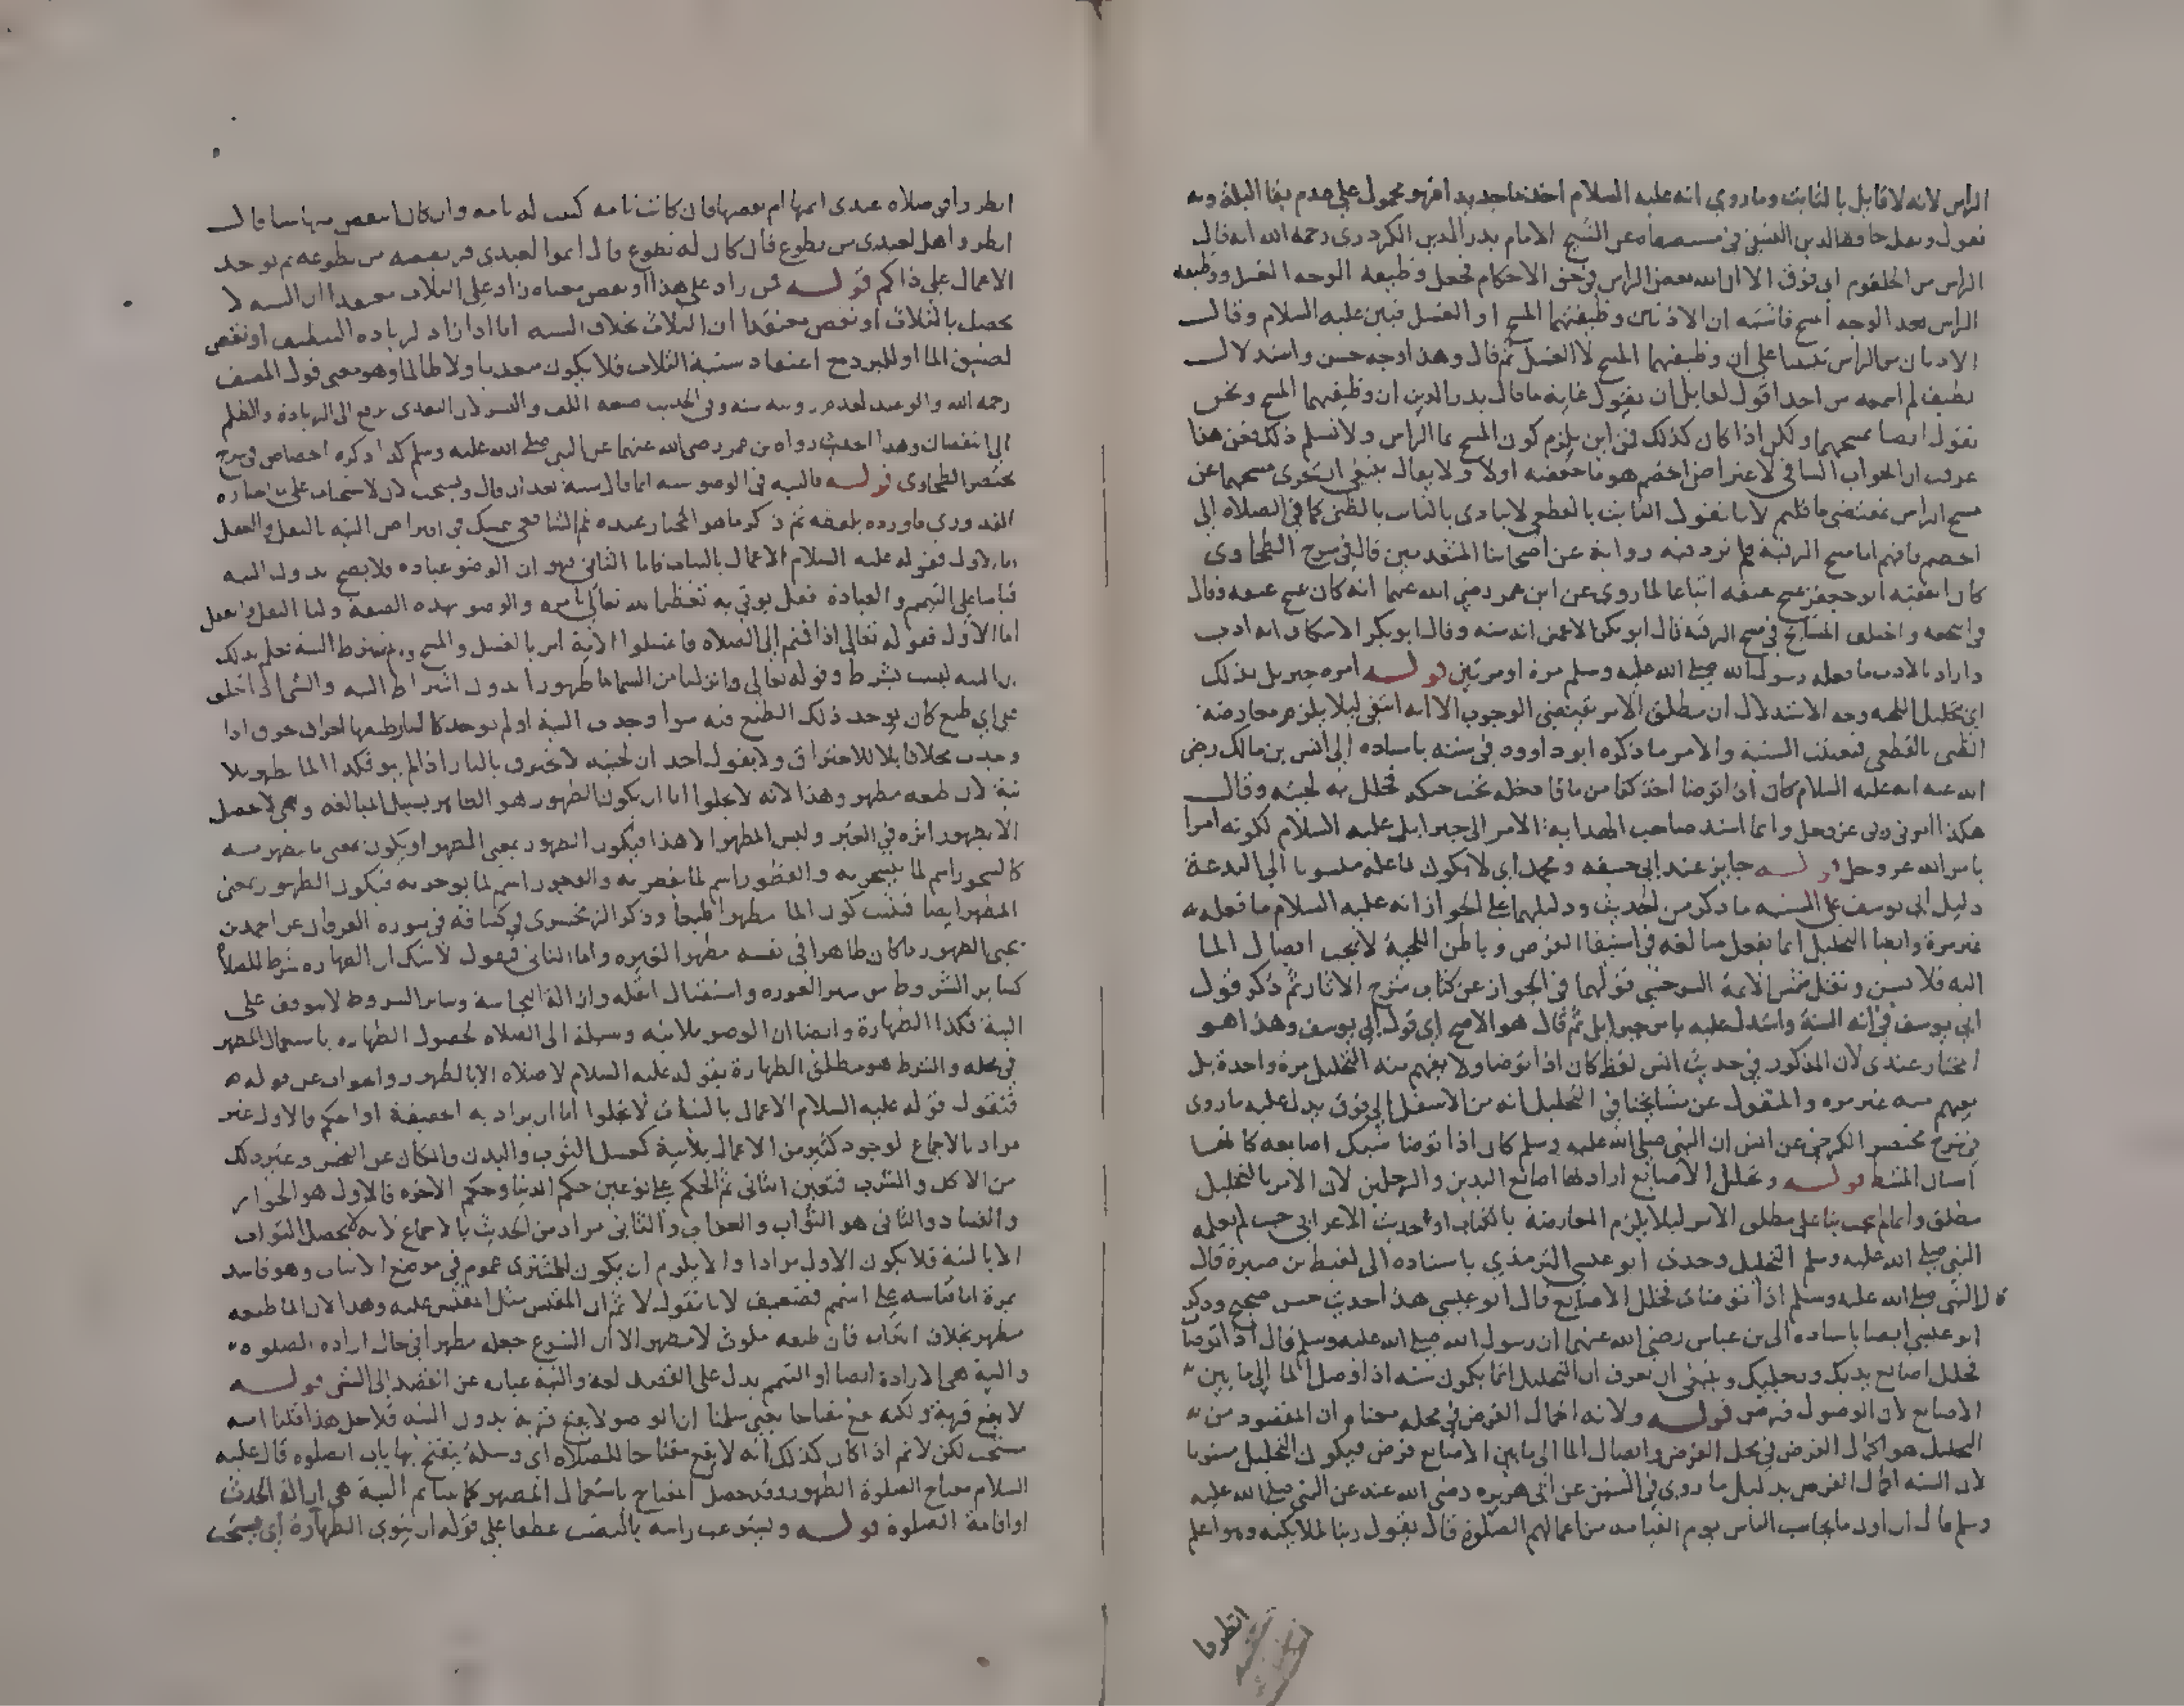 الراس لانه لا قايل بالثابت وما روي انه عليه السلام اخذ ما جديدا فهو محمول على عدم بقا البلة وبه
نقول ونقل حافظ الدين النسفي في مستصفاه عن الشيخ الامام بدر الدين الكردري رحمه الله انه قال
الراس من الحلقوم الى فوق الا ان الله بعض الراس في حق الاحكام فجعل وظيفة الوجه الغسل ووظيفة
الراس بعد الوجه المسح فاشتبه ان الاذنين وظيفتهما المسح او الغسل فبين عليه السلام وقال
الاذنان من الراس تنبيها على ان وظيفتهما المسح لا الغسل ثم قال وهذا وجه حسن واستدلال
لطيف لم اسمعه من احد اقول لقايل ان يقول غاية ما قال بدر الدين ان وظيفتهما المسح ونحن
نقول ايضا بمسحهما ولكن اذا كان كذلك فمن اين يلزم كون المسح بما الراس ولا نسلم ذلك فعن هذا
عرفت ان الجواب الشافي لاعتراض الخصم هو ما حققته اولا ولا يقال ينبغي ان يجزى مسحهما عن
مسح الراس بمقتضى ما قلتم لانا نقول الثابت بالقطعي لا يتادى بالثابت بالظني كما في الصلاة الى
الحصيم فافهم اما مسح الرقبة فلم ترد فيه رواية عن اصحابنا المتقدمين قال في شرح الطحاوي
كان الفقيه ابو جعفر يمسح عنقه اتباعا لما روي عن ابن عمر رضي الله عنهما انه كان يمسح عنقه وقال
في التحفة واختلف المشايخ في مسح الرقبة قال ابو بكر الاعمش انه سنة وقال ابو بكر الاسكاف انه ادب
واراد بالادب ما فعله رسول الله صلى الله عليه وسلم مرة او مرتين قوله امره جبريل بذلك
اي بتخليل اللحية وجه الاستدلال ان مطلق الامر يقتضي الوجوب الا انه انتفى ليلا يلزم معارضة
الظني بالقطعي فبقيت السنية والامر ما ذكره ابو داوود في سننه باسناده الى انس بن مالك رضي
الله عنه انه عليه السلام كان اذا توضا اخذ كفا من ما فادخله تحت حنكه فخلل به لحيته وقال
هكذا امرني ربي عز وجل وانما اسند صاحب الهداية الامر الى جبرايل عليه السلام لكونه امرا
بامر الله عز وجل قوله جايز عند ابي حنيفه ومحمد اي لا يكون فاعله منسوبا الى البدعة
دليل ابي يوسف على السنيه ما ذكر من الحديث ودليلهما على الجواز انه عليه السلام ما فعله
غير مرة وايضا التخليل انما يفعل مبالغه في استيفا الفرض وباطن اللحية لا يجب ايصال الما
اليه فلا يسن ونقل شمس الايمة السرخسي قولهما في الجواز عن كتاب شرح الاثار ثم ذكر قول
ابي يوسف في انه السنة واستدل عليه بامر جبرايل ثم قال هو الاصح اي قول ابي يوسف وهذا هو
المختار عندي لان المذكور في حديث انس لفظ كان اذا توضا ولا يفهم منه التخليل مرة واحدة بل
يفهم منه غير مره والمنقول عن مشايخنا في التخليل انه من الاسفل الى فوق يدل عليه ما روي
في شرح مختصر الكرخي عن انس ان النبي صلى الله عليه وسلم كان اذا توضا شبك اصابعه كانها
اسنان المشط قوله وتخليل الاصابع اراد بها اصابع اليدين والرجلين لان الامر بالتخليل
مطلق وانما لم يجب بنا على مطلق الامر ليلا يلزم المعارضة بالكتاب او حديث الاعرابي حيث لم يعلمه
النبي صلى الله عليه وسلم التخليل وحدث ابو عيسى الترمذي باسناده الى لقيط بن صبرة قال
قال النبي صلى الله عليه وسلم اذا توضات فخلل الاصابع قال ابو عيسى هذا حديث حسن صحيح وذكر
ابو عيسى ايضا باسناده الى بن عباس رضي الله عنهما ان رسول الله صلى الله عليه وسلم قال اذا توضات
فخلل اصابع يديك ورجليك وينبغي ان تعرف ان التخليل انما يكون سنة اذا وصل الما الى ما بين
الاصابع لان الوصول فرض قوله ولانه اكمال الفرض في محله معناه ان المقصود من
التخليل هو اكمال الفرض في محل الفرض وايصال الما الى ما بين الاصابع فرض فيكون التخليل مسنونا
لان السنه اكمال الفرض بدليل ما روي في السنن عن ابي هريره رضي الله عنه عن النبي صلى الله عليه
وسلم قال ان اول ما يحاسب الناس يوم القيامه من اعمالهم الصلوة قال يقول ربنا لملايكته وهو اعلم
انظروا
انظروا في صلاة عبدي اتمها ام نقصها فان كانت تامه كتبت له تامه وان كان انتقص منها شيا قال
انظروا هل لعبدي من تطوع فان كان له تطوع قال اتموا لعبدي فريضته من تطوعه ثم توخذ
الاعمال على ذاكم قوله فمن زاد على هذا او نقص معناه زاد على الثلاث معتقدا ان السنه لا
تحصل بالثلاث او نقص معتقدا ان الثلاث خلاف السنه اما اذا زاد لزياده التنظيف او نقص
لضيق الما او للبرد مع اعتقاد سنية الثلاث فلا يكون معتديا ولا ظالما وهو معنى قول المصنف
رحمه الله والوعيد لعدم رويته سنه وفي الحديث صنعه اللف والنشر لان التعدي يرجع الى الزيادة والظلم
الى النقصان وهذا الحديث رواه بن عمر رضي الله عنهما عن النبي صلى الله عليه وسلم كذا ذكره الجصاص في شرح
مختصر الطحاوي قوله فالنيه في الوضو سنه انما قال سنة بعد ان قال ويستحب لان الاستحباب على اختياره
القدوري فاورده بلفظه ثم ذكر ما هو المختار عنده ثم الشافعي تمسك في افتراض النيه بالنقل والعقل
اما الاول فقوله عليه السلام الاعمال بالنيات فاما الثاني فهو ان الوضو عباده فلا يصح بدون النيه
قياسا على التيمم والعبادة فعل يوتى به تعظيما لله تعالى بامره والوضو بهذه الصفه ولنا النقل والعقل
اما الاول فقوله تعالى اذا قمتم الى الصلاة فاغسلوا الاية امر بالغسل والمسح ولم يشترط النية فعلم بذلك
ان النيه ليست بشرط وقوله تعالى وانزلنا من السما ما طهورا بدون اشتراط النيه والشي اذا خلق
على اي طبع كان يوجد ذلك الطبع فيه سوا وجدت النية او لم توجد كالنار طبعها احراق حرق اذا
وجدت محلا قابلا للاحتراق ولا يقول احد ان لحيته لا تحترق بالنار اذا لم ينو فكذا الما طهور بلا
نية لان طبعه مطهر وهذا لانه لا يخلوا اما ان يكون الطهور هو الطاهر بسبيل المبالغه وهي لا تحصل
الا بظهور اثره في الغير وليس المطهر الا هذا فيكون الطهور بمعنى المطهر او يكون بمعنى ما يتطهر به
كالسحور اسم لما يتسحر به والفطور اسم لما يفطر به والوجور اسم لما يوجر به فيكون الطهور بمعنى
المطهر ايضا فثبت كون الما مطهرا طبعا وذكر الزمخشري في كشافه في سورة الفرقان عن احمد بن
يحيى الطهور ما كان طاهرا في نفسه مطهرا لغيره واما الثاني فنقول لا شك ان الطهاره شرط للصلاة
كساير الشروط من ستر العوره واستقبال القبله وازالة النجاسة وساير الشروط لا يتوقف على
النية فكذا الطهارة وايضا ان الوضو بلا نيه وسيلة الى الصلاه لحصول الطهاره باستعمال المطهر
في محله والشرط هو مطلق الطهارة بقوله عليه السلام لا صلاه الا بالطهور والجواب عن قوله
فنقول قوله عليه السلام الاعمال بالنيات لا يخلوا اما ان يراد به الحقيقة او الحكم فالاول غير
مراد بالاجماع لوجود كثير من الاعمال بلا نية كغسل الثوب والبدن والمكان عن النجس وغير ذلك
من الاكل والشرب فتعين الثاني ثم الحكم على نوعين حكم الدنيا وحكم الاخره فالاول هو الجواز
والفساد والثاني هو الثواب والعقاب والثاني مراد من الحديث بالاجماع لانه لا يحصل الثواب
الا بالنية فلا يكون الاول مرادا والا يلزم ان يكون للمشترك عموم في موضع الاثبات وهو فاسد
بمرة اما قياسه على التيمم فضعيف لانا نقول لا نم ان المقيس مثل المقيس عليه وهذا لان الما طبعه
مطهر بخلاف التراب فان طبعه ملوث لا مطهر الا ان الشرع جعله مطهرا في حال ارادة الصلوه
والنية هي الارادة ايضا او التيمم يدل على القصد لغة والنية عباره عن القصد الى الشي قوله
لا يقع قربة ولكنه يقع مفتاحا يعني سلمنا ان الوضو لا يقع قربة بدون النيه فلاجل هذا قلنا انه
مستحب لكن لا نم اذا كان كذلك انه لا يقع مفتاحا للصلاه اي وسيلة يفتح بها باب الصلوه قال عليه
السلام مفتاح الصلوة الطهور وقد حصل المفتاح باستعمال المطهر كما بينا ثم النية هي ازالة الحدث
او اقامة الصلوة قوله ويستوعب راسه بالنصب عطفا على قوله ان ينوي الطهارة اي يستحب